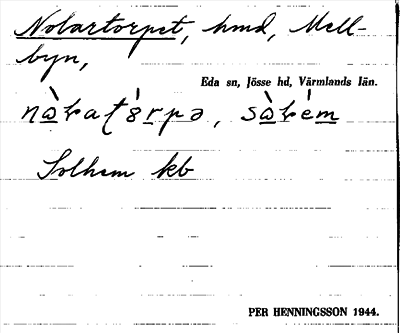 Nolartorpet, hmd, Mell-
byn,
Eda sn, Jösse hd, Värmlands län.
Solhem kb
PER HENNINGSSON 1944.